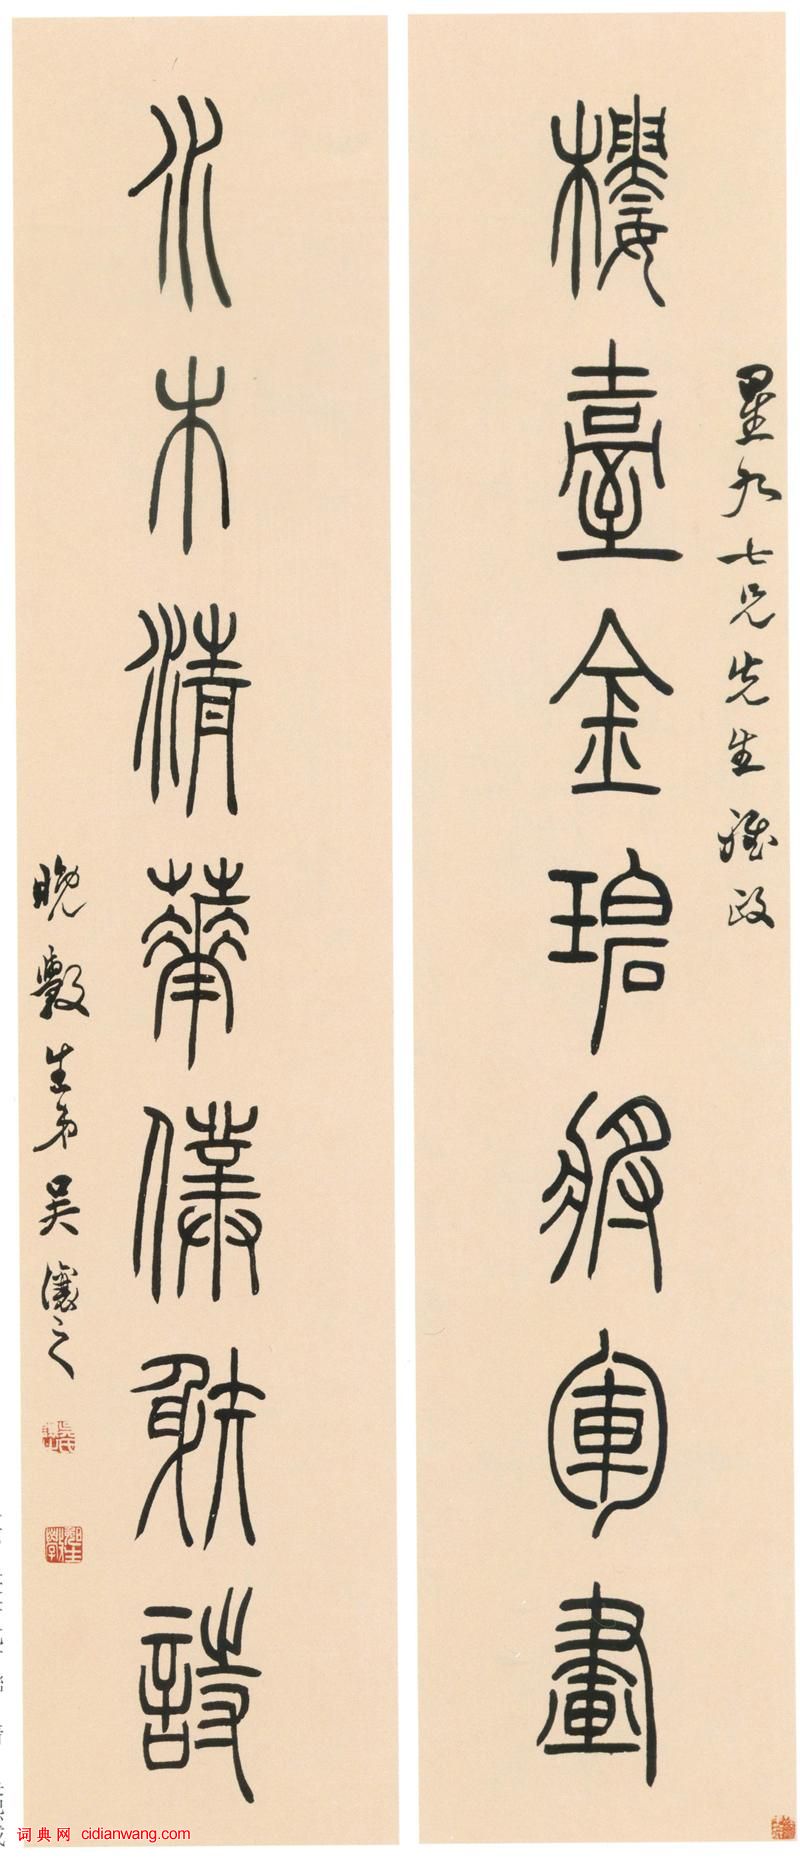 星九七兄先生雅政
樓臺金碧將軍畫
水木清華僕射詩
晚斅生弟吳讓之
词典网 cidianwang.com